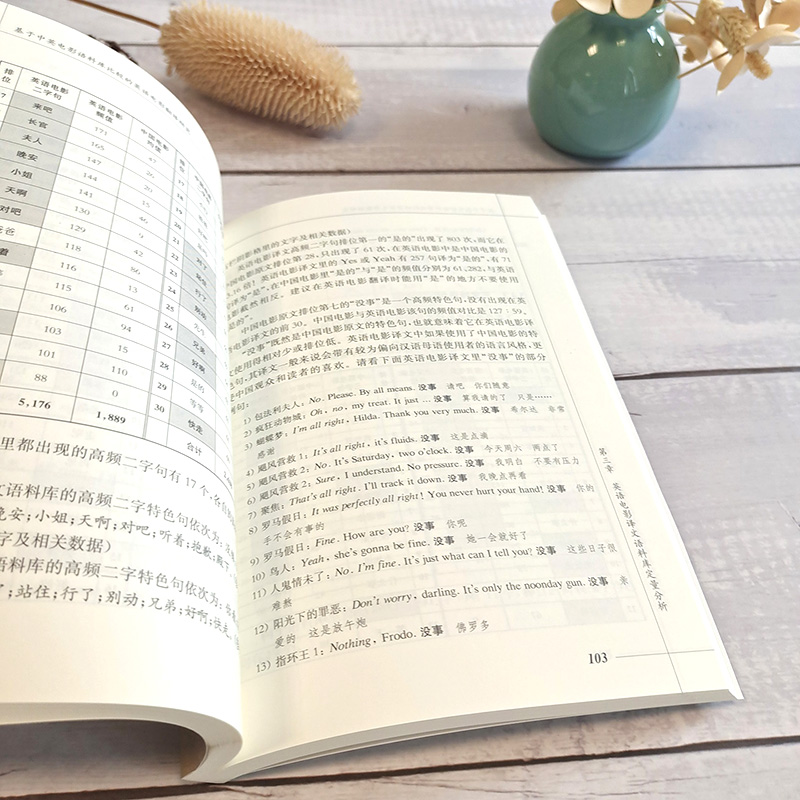 基于中英电影语料库比较的英语电影翻译研究
排位 英语电影二字句 英语电影频值 中国电影均值 排位
7 来吧 171 47
长官 165 26 17
夫人 147 20 18
晚安 144 15 19
小姐 141 46 20
天啊 130 9 21
对吧 129 42 22
爸 118 86 23
着 116 13 24 行了
115 15 25
106 61 26
103 94 27 兄弟
101 15 28 好啊
88 110 29 是的
0 30 等等
快走
5,176 1,889 合计
里都出现的高频二字句有 17 个,
语料库的高频二字特色句依次为:
晚安;小姐;天啊;对吧;听着;抱歉;
字及相关数据)
语料库的高频二字特色句依次为:
了;站住;行了;别动;兄弟;好啊;快走。
阴影格里的文字及相关数据)
英语电影译文高频二字句排位第一的“是的”出现了 803 次,而它在
中国电影原文排位第 28,只出现了 61 次,在英语电影中是中国电影的
.16 倍!英语电影译文里的 Yes 或 Yeah 有 257 句译为“是的”,有 71
译为“是”,在中国电影里“是的”与“是”的频值分别为 61,282,与英语
影截然相反。建议在英语电影翻译时能用“是”的地方不要使用
是的”。
中国电影原文排位第七的“没事”是一个高频特色句,没有出现在英
影译文的前 30。中国电影与英语电影该句的频值对比是 127∶59。
“没事”既然是中国电影原文的特色句,也就意味着它在英语电影译
文使用得相对少或排位低。英语电影译文中如果使用了中国电影的特
色句,其译文一般来说会带有较为偏向汉语母语使用者的语言风格,更
受中国观众和读者的喜欢。请看下面英语电影译文里“没事”的部分
例句:
1) 包法利夫人:No. Please. By all means. 没事 请吧 你们随意
2) 疯狂动物城:Oh, no, my treat. It just … 没事 算我请的了 只是……
3) 蝴蝶梦:I'm all right, Hilda. Thank you very much. 没事 希尔达 非常
感谢
4) 飓风营救 1:It's all right, it's fluids. 没事 这是点滴
5) 飓风营救 2:No. It's Saturday, two o'clock. 没事 今天周六 两点了
6) 飓风营救 2:Sure. I understand. No pressure. 没事 我明白 不要有压力
7) 聚焦:That's all right. I'll track it down. 没事 我晚点再看
8) 罗马假日:It was perfectly all right! You never hurt your hand! 没事 你的
手不会有事的
9) 罗马假日:Fine. How are you? 没事 你呢
10) 鸟人:Yeah, she's gonna be fine. 没事 她一会就好了
11) 人鬼情未了:No. I'm fine. It's just what can I tell you? 没事 这些日子很
难熬
12) 阳光下的罪恶:Don't worry, darling. It's only the noonday gun. 没事 亲
爱的 这是放午炮
13) 指环王 1:Nothing, Frodo. 没事 佛罗多
第三章 英语电影译文语料库定量分析
103